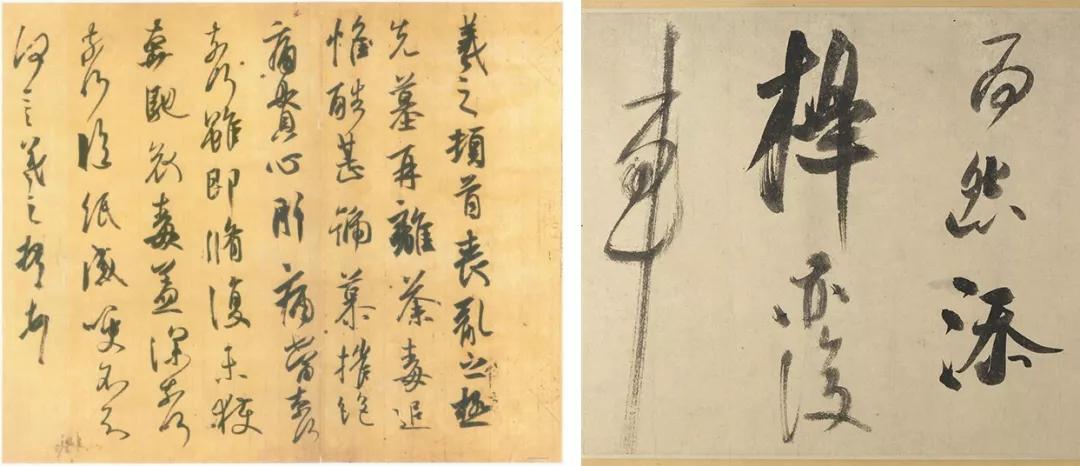 羲之頓首喪亂之極
先墓再離荼毒追
惟酷甚號慕摧絕
痛貫心肝痛當奈何
奈何雖即脩復未獲
奔馳哀毒益深奈何
奈何臨紙感哽不知
何言羲之頓首頓首
而怨添
槔亦復
車